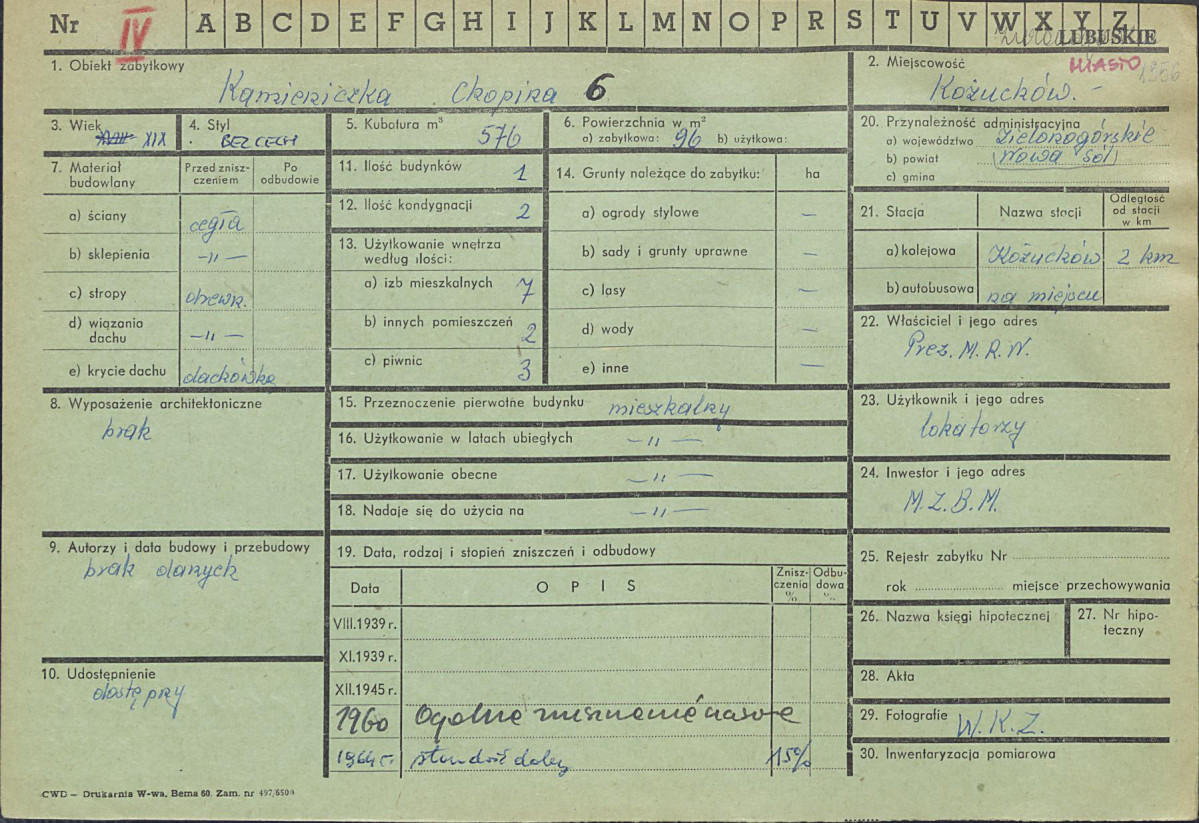 Nr IV A B C D E F G H I J K L M N O P R S T U V W X Y Z
LUBUSKIE
MIASTO
1. Obiekt zabytkowy
Kamieniczka Chopina 6
2. Miejscowość
Kożuchów.-
3. Wiek XIX
4. Styl
BEZ CECH
5. Kubatura m³ 576
6. Powierzchnia w m²
a) zabytkowa: 96 b) użytkowa:
20. Przynależność administracyjna
a) województwo Zielonogórskie
b) powiat (Nowa Sól)
c) gmina
7. Materiał budowlany
Przed znisz-
czeniem
Po
odbudowie
a) ściany cegła
b) sklepienia -"-
c) stropy drewn.
d) wiązania
dachu -"-
e) krycie dachu dachówka
11. Ilość budynków 1
12. Ilość kondygnacji 2
13. Użytkowanie wnętrza
według ilości:
a) izb mieszkalnych 7
b) innych pomieszczeń 2
c) piwnic 3
14. Grunty należące do zabytku: ha
a) ogrody stylowe –
b) sady i grunty uprawne –
c) lasy –
d) wody –
e) inne –
21. Stacja Nazwa stacji
Odległość
od stacji
w km
a) kolejowa Kożuchów 2 km
b) autobusowa na miejscu
22. Właściciel i jego adres
Prez. M.R.N.
8. Wyposażenie architektoniczne
brak
15. Przeznaczenie pierwotne budynku mieszkalny
16. Użytkowanie w latach ubiegłych -"-
17. Użytkowanie obecne -"-
18. Nadaje się do użycia na -"-
23. Użytkownik i jego adres
lokatorzy
24. Inwestor i jego adres
M.Z.B.M.
9. Autorzy i data budowy i przebudowy
brak danych
10. Udostępnienie
dostępny
19. Data, rodzaj i stopień zniszczeń i odbudowy
Data OPIS
Znisz-
czenia
%
Odbu-
dowa
%
VIII.1939 r.
XI.1939 r.
XII.1945 r.
1960 Ogólne
1964 r. stan dość dobry 15%
25. Rejestr zabytku Nr
rok miejsce przechowywania
26. Nazwa księgi hipotecznej
27. Nr hipo-
teczny
28. Akta
29. Fotografie W.K.Z.
30. Inwentaryzacja pomiarowa
CWD – Drukarnia W-wa, Bema 60. Zam. nr 497/6500